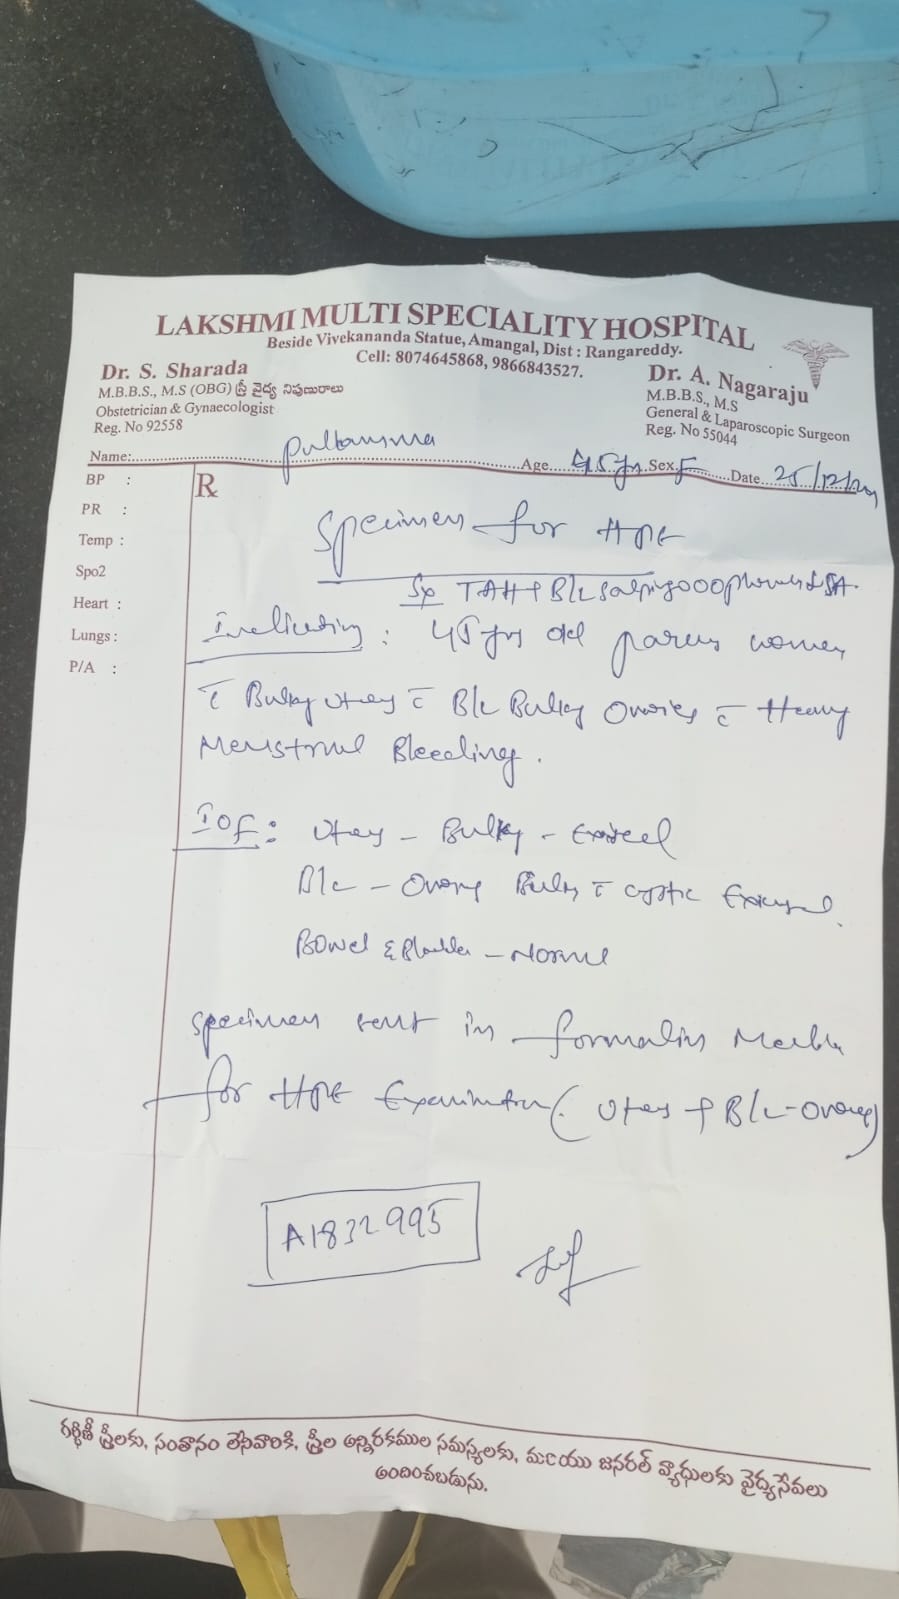 LAKSHMI MULTI SPECIALITY HOSPITAL
Beside Vivekananda Statue, Amangal, Dist : Rangareddy.
Cell: 8074645868, 9866843527.
Dr. S. Sharada
M.B.B.S., M.S (OBG) స్త్రీ వైద్య నిపుణురాలు
Obstetrician & Gynaecologist
Reg. No 92558
Dr. A. Nagaraju
M.B.B.S., M.S
General & Laparoscopic Surgeon
Reg. No 55044
Name: Age 45 yrs Sex F Date 25/12/
BP :
PR :
Temp :
Spo2
Heart :
Lungs :
P/A :
R
Specimen for HPE
Sx TAH + B/L Salpingo
: 45 yrs old parous women
c Bulky Uterus c B/L Bulky Ovaries c Heavy
Menstrual Bleeding.
IOF: Uterus - Bulky -
B/L - Ovary Bulky c cystic
Bowel & Bladder - Normal
Specimen sent in formalin
for HPE Examination (Uterus + B/L - Ovaries)
A1832995
గర్భిణీ స్త్రీలకు, సంతానం లేనివారికి, స్త్రీల అన్నిరకముల సమస్యలకు, మరియు జనరల్ వ్యాధులకు వైద్యసేవలు
అందించబడును.